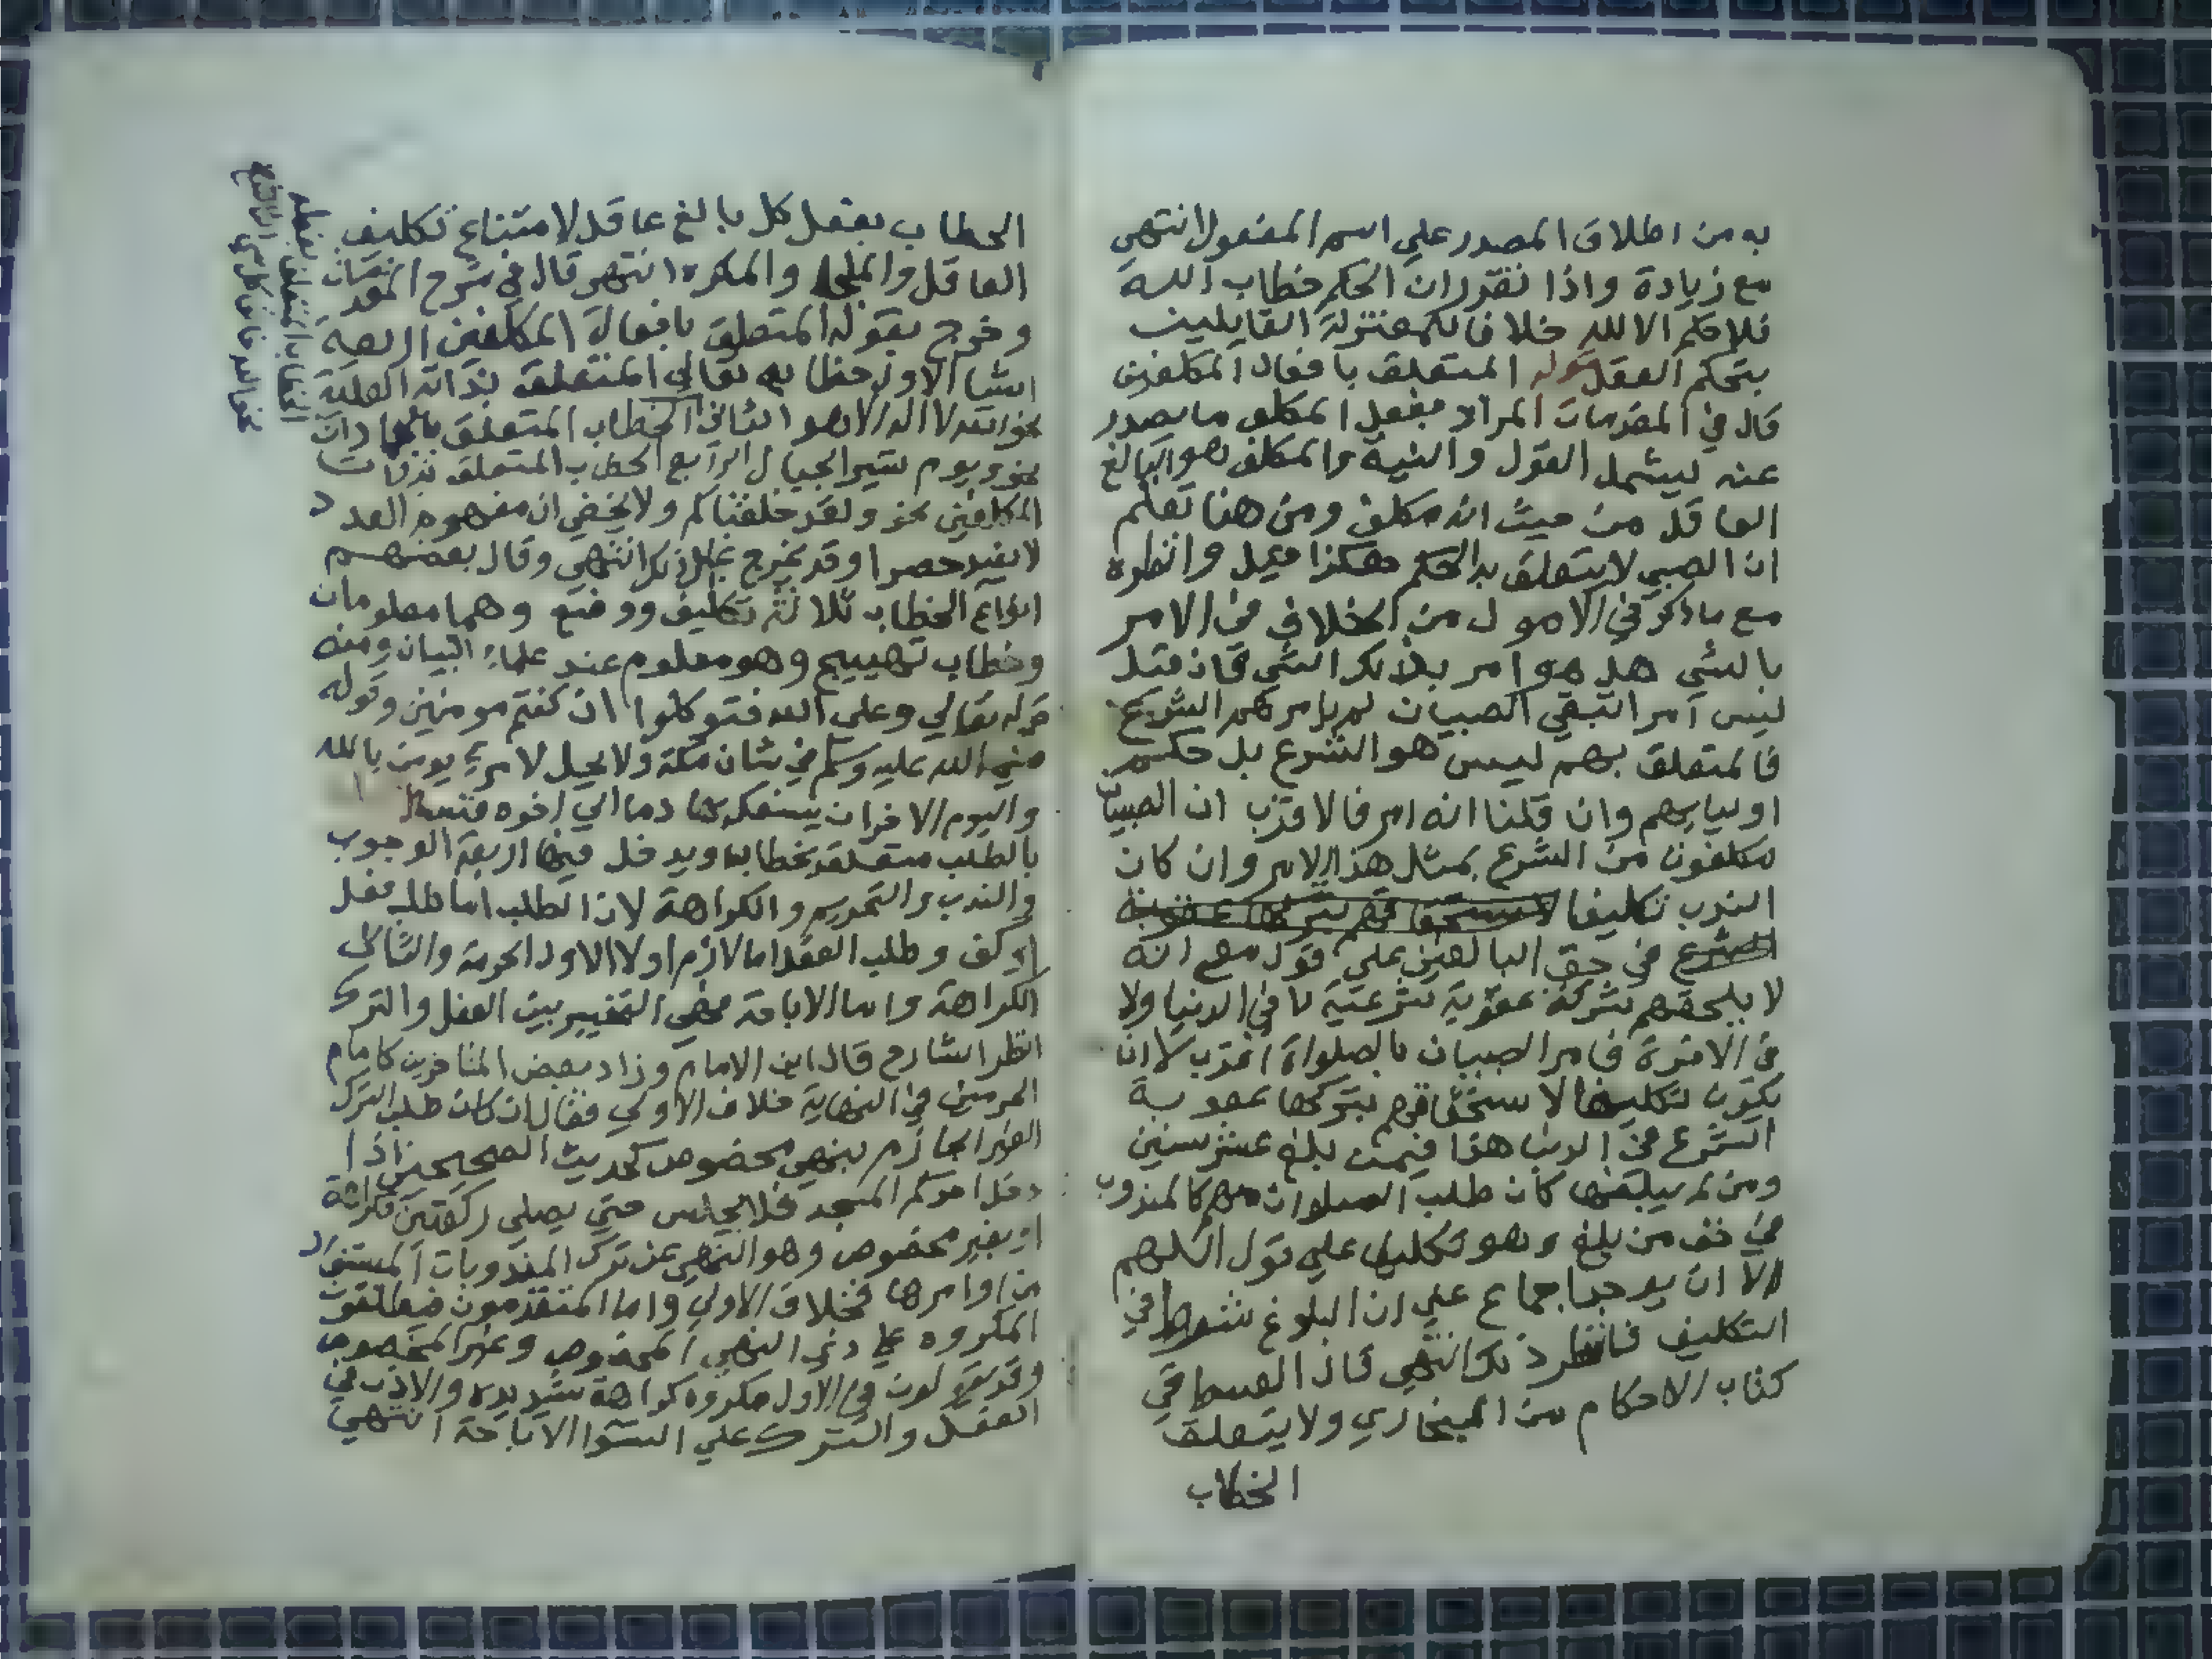 به من اطلاق المصدر علي اسم المفعول انتهي
مع زيادة واذا تقرر ان الحكم خطاب الله
فلا حكم الا لله خلافا للمعتزلة القايلين
بتحكم العقل قوله المتعلق بافعال المكلفين
قال في المقدمات المراد بفعل المكلف ما يصدر
عنه ليشمل القول والنية والمكلف هو البالغ
العاقل من حيث انه مكلف ومن هنا تعلم
ان الصبي لا يتعلق به الحكم هكذا قيل وانظره
مع ما ذكر في الاصول من الخلاف في الامر
بالشي هل هو امر بذلك الشي فان قيل
ليس امرا لبقي الصبيان لم يامرهم الشرع
فالمتعلق بهم ليس هو الشرع بل حكم
اوليايهم وان قلنا انه امر فالاقرب ان الصبيان
مكلفون من الشرع بمثل هذا الامر وان كان
الندب تكليفا لاستحقاقهم بتركها عقوبة
الشرع في حق البالغين علي قول مع انه
لا يلحقهم بتركه عقوبة شرعية لا في الدنيا ولا
في الاخرة فامر الصبيان بالصلواة اقرب لان
يكون تكليفا لاستحقاقهم بتركها عقوبة
الشرع في الدنيا هذا فيمن بلغ عشر سنين
ومن لم يبلغها كان طلب الصلوات منهم كالمندوب
في حق من بلغ وهو تكليف علي قول اللهم
الا ان يوجد اجماع علي ان البلوغ شرط في
التكليف فانظر ذلك انتهي قال القسط في
كتاب الاحكام من البخاري ولا يتعلق
الخطاب
الخطاب بفعل كل بالغ عاقل لامتناع تكليف
الغافل والملجا والمكره انتهي قال في شرح المقدمات
وخرج بقوله المتعلق بافعال المكلفين اربعة
اشيا الاول خطابه تعالي المتعلق بذاته العلية
نحو الله لا اله الا هو الثاني الخطاب المتعلق بالجمادات
نحو ويوم نسير الجبال الرابع الخطاب المتعلق بذوات
المكلفين نحو ولقد خلقناكم ولا يخفي ان مفهوم العدد
لا يفيد حصرا وقد يخرج غير ذلك انتهي وقال بعضهم
انواع الخطاب ثلاثة تكليف ووضع وهما معلومان
وخطاب تهييج وهو معلوم عند علماء البيان ومنه
قوله تعالي وعلي الله فتوكلوا ان كنتم مومنين وقوله
صلي الله عليه وسلم في شان مكة ولا يحل لامرئ يومن بالله
واليوم الاخر ان يسفك بها دما الي اخره قوله
بالطلب متعلقة بخطابه ويدخل فيها اربعة الوجوب
والندب والتحريم والكراهة لان الطلب اما طلب فعل
او كف وطلب العقد اما لازم او لا الاول الحرمة والثاني
الكراهة واما الاباحة فهي التخيير بين الفعل والترك
انظر الشارح قال ابن الامام وزاد بعض المتاخرين كامام
الحرمين في النهاية خلاف الاولي فقال ان كان طلب الترك
الغير الجازم بنهي مخصوص كحديث الصحيحين اذا
دخل احدكم المسجد فلا يجلس حتي يصلي ركعتين فكراهة
او بغير مخصوص وهو النهي عن ترك المندوبات المستفاد
من اوامرها فخلاف الاولي واما المتقدمون فيطلقون
المكروه علي ذي النهي المخصوص وغير المخصوص
وقد يقولون في الاول مكروه كراهة شديدة والاذن في
الفعل والترك علي السوا الاباحة انتهي